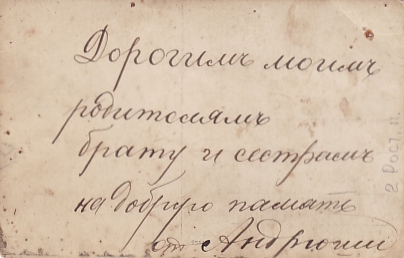 Дорогимъ моимъ
родителямъ
брату и сестрамъ
на добрую память
от Андрюши